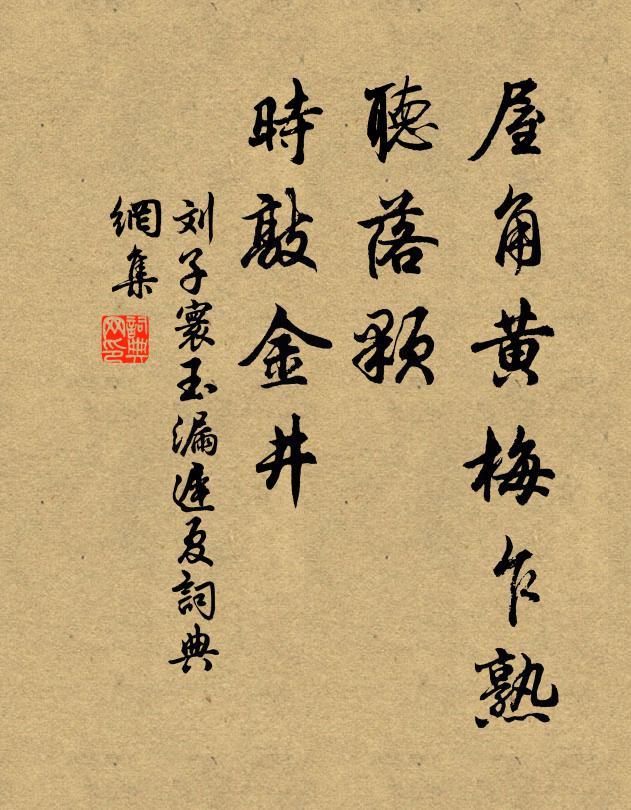 屋角黄梅乍熟
聽落顆
時敲金井
刘子寰玉漏遲夏詞典
網集
詞典網印